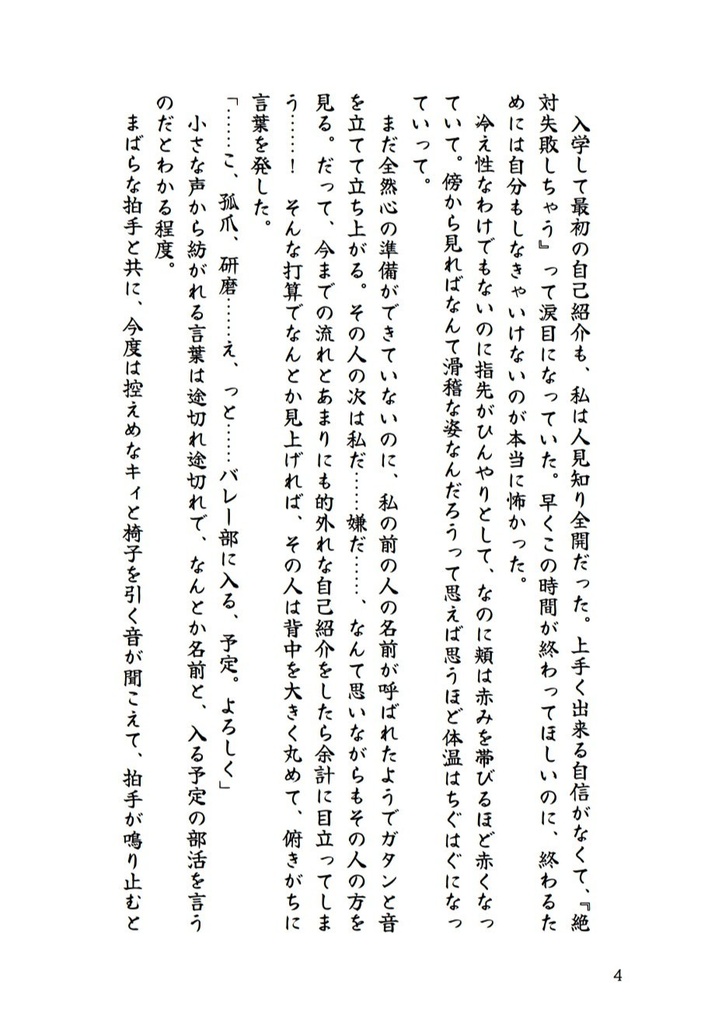 入学して最初の自己紹介も、私は人見知り全開だった。上手く出来る自信がなくて、『絶
対失敗しちゃう』って涙目になっていた。早くこの時間が終わってほしいのに、終わるた
めには自分もしなきゃいけないのが本当に怖かった。
冷え性なわけでもないのに指先がひんやりとして、なのに頬は赤みを帯びるほど赤くなっ
ていて。傍から見ればなんて滑稽な姿なんだろうって思えば思うほど体温はちぐはぐになっ
ていって。
まだ全然心の準備ができていないのに、私の前の人の名前が呼ばれたようでガタンと音
を立てて立ち上がる。その人の次は私だ……嫌だ……、なんて思いながらもその人の方を
見る。だって、今までの流れとあまりにも的外れな自己紹介をしたら余計に目立ってしま
う……！　そんな打算でなんとか見上げれば、その人は背中を大きく丸めて、俯きがちに
言葉を発した。
「……こ、孤爪、研磨……え、っと……バレー部に入る、予定。よろしく」
小さな声から紡がれる言葉は途切れ途切れで、なんとか名前と、入る予定の部活を言う
のだとわかる程度。
まばらな拍手と共に、今度は控えめなキィと椅子を引く音が聞こえて、拍手が鳴り止むと
4